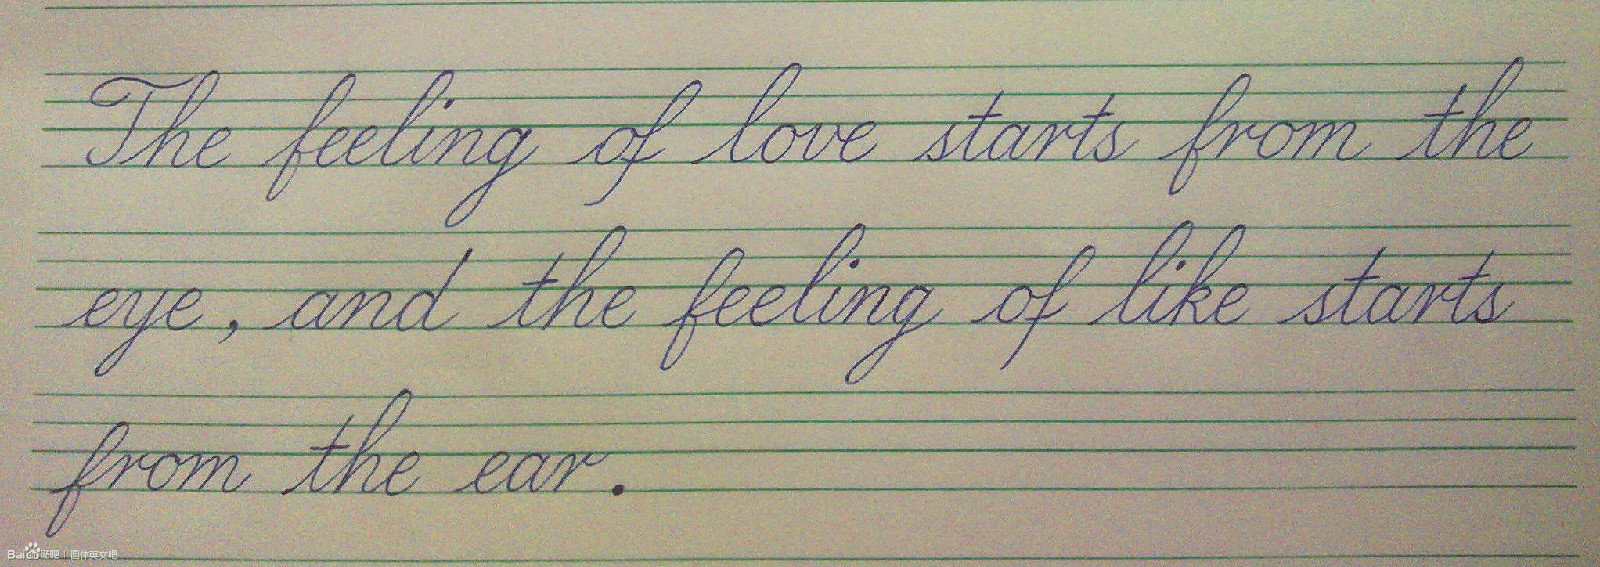 The feeling of love starts from the
eye, and the feeling of like starts
from the ear.
Bai 贴吧 | 圆体英文吧